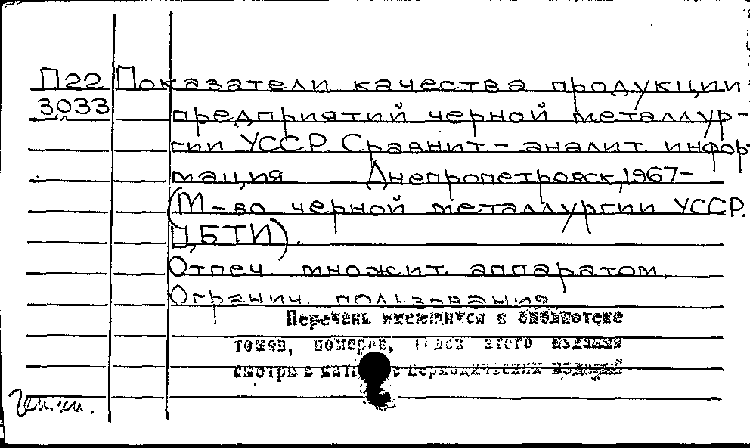 П22 Показатели качества продукции
3033 предприятий черной металлур-
гии УССР Сравнит-аналит. инфор-
мация Днепропетровск, 1967-
(М-во черной металлургии УССР.
ЦБТИ).
Отпеч. множит. аппаратом
Огранич. пользования
Перечень имеющихся в библиотеке
томов, номеров, этого издания
смотри в периодических изданий